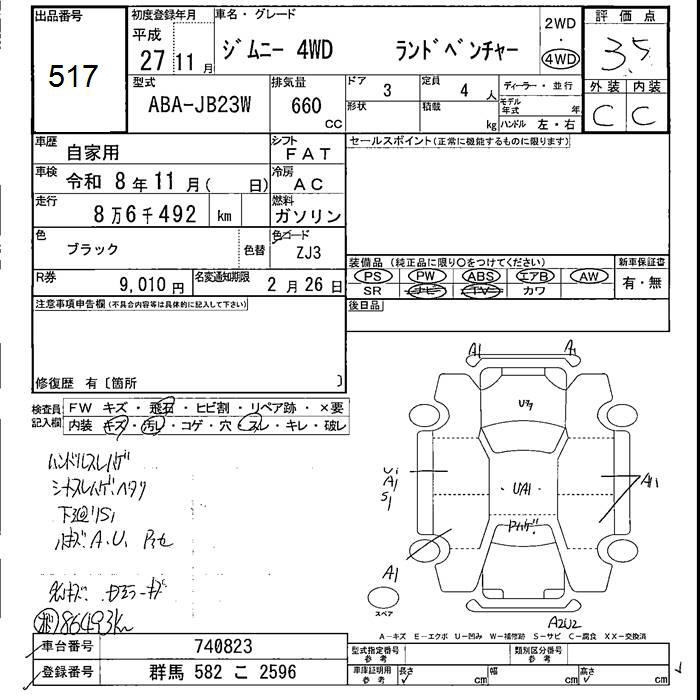 出品番号
517
初度登録年月
平成
27 11 月
車名・グレード
ジムニー 4WD ランドベンチャー
2WD
・
4WD
評価点
3.5
外装 内装
C C
型式
ABA-JB23W
排気量
660
CC
ドア
3
定員
4 人
ディーラー・並行
形状
積載
kg
モデル年式 年
ハンドル 左・右
車歴
自家用
シフト
FAT
セールスポイント(正常に機能するものに限ります)
車検
令和 8年11月( 日)
冷房
AC
走行
8万6千492 km
燃料
ガソリン
色
ブラック
色替
色コード
ZJ3
装備品 (純正品に限り○をつけてください)
新車保証書
PS PW ABS エアB AW
SR ナビ TV カワ
有・無
R券
9,010 円
名変通知期限
2月26日
後日品
注意事項申告欄(不具合内容等は具体的に記入して下さい)
修復歴 有〔箇所 〕
検査員
記入欄
FW キズ・飛石・ヒビ割・リペア跡・×要
内装 キズ・汚レ・コゲ・穴・スレ・キレ・破レ
ハンドルスレハゲ
シートスレハゲ、ヘタリ
下廻りS1
A.U.
86493km
A1 A1
U1
A1
S1
UA1
A1
A1
スペア
A2U2
A-キズ E-エクボ U-凹み W-補修跡 S-サビ C-腐食 XX-交換済
車台番号
740823
型式指定番号
参考
類別区分番号
参考
登録番号
群馬 582 こ 2596
車庫証明用
参考
長さ cm 幅 cm 高さ cm